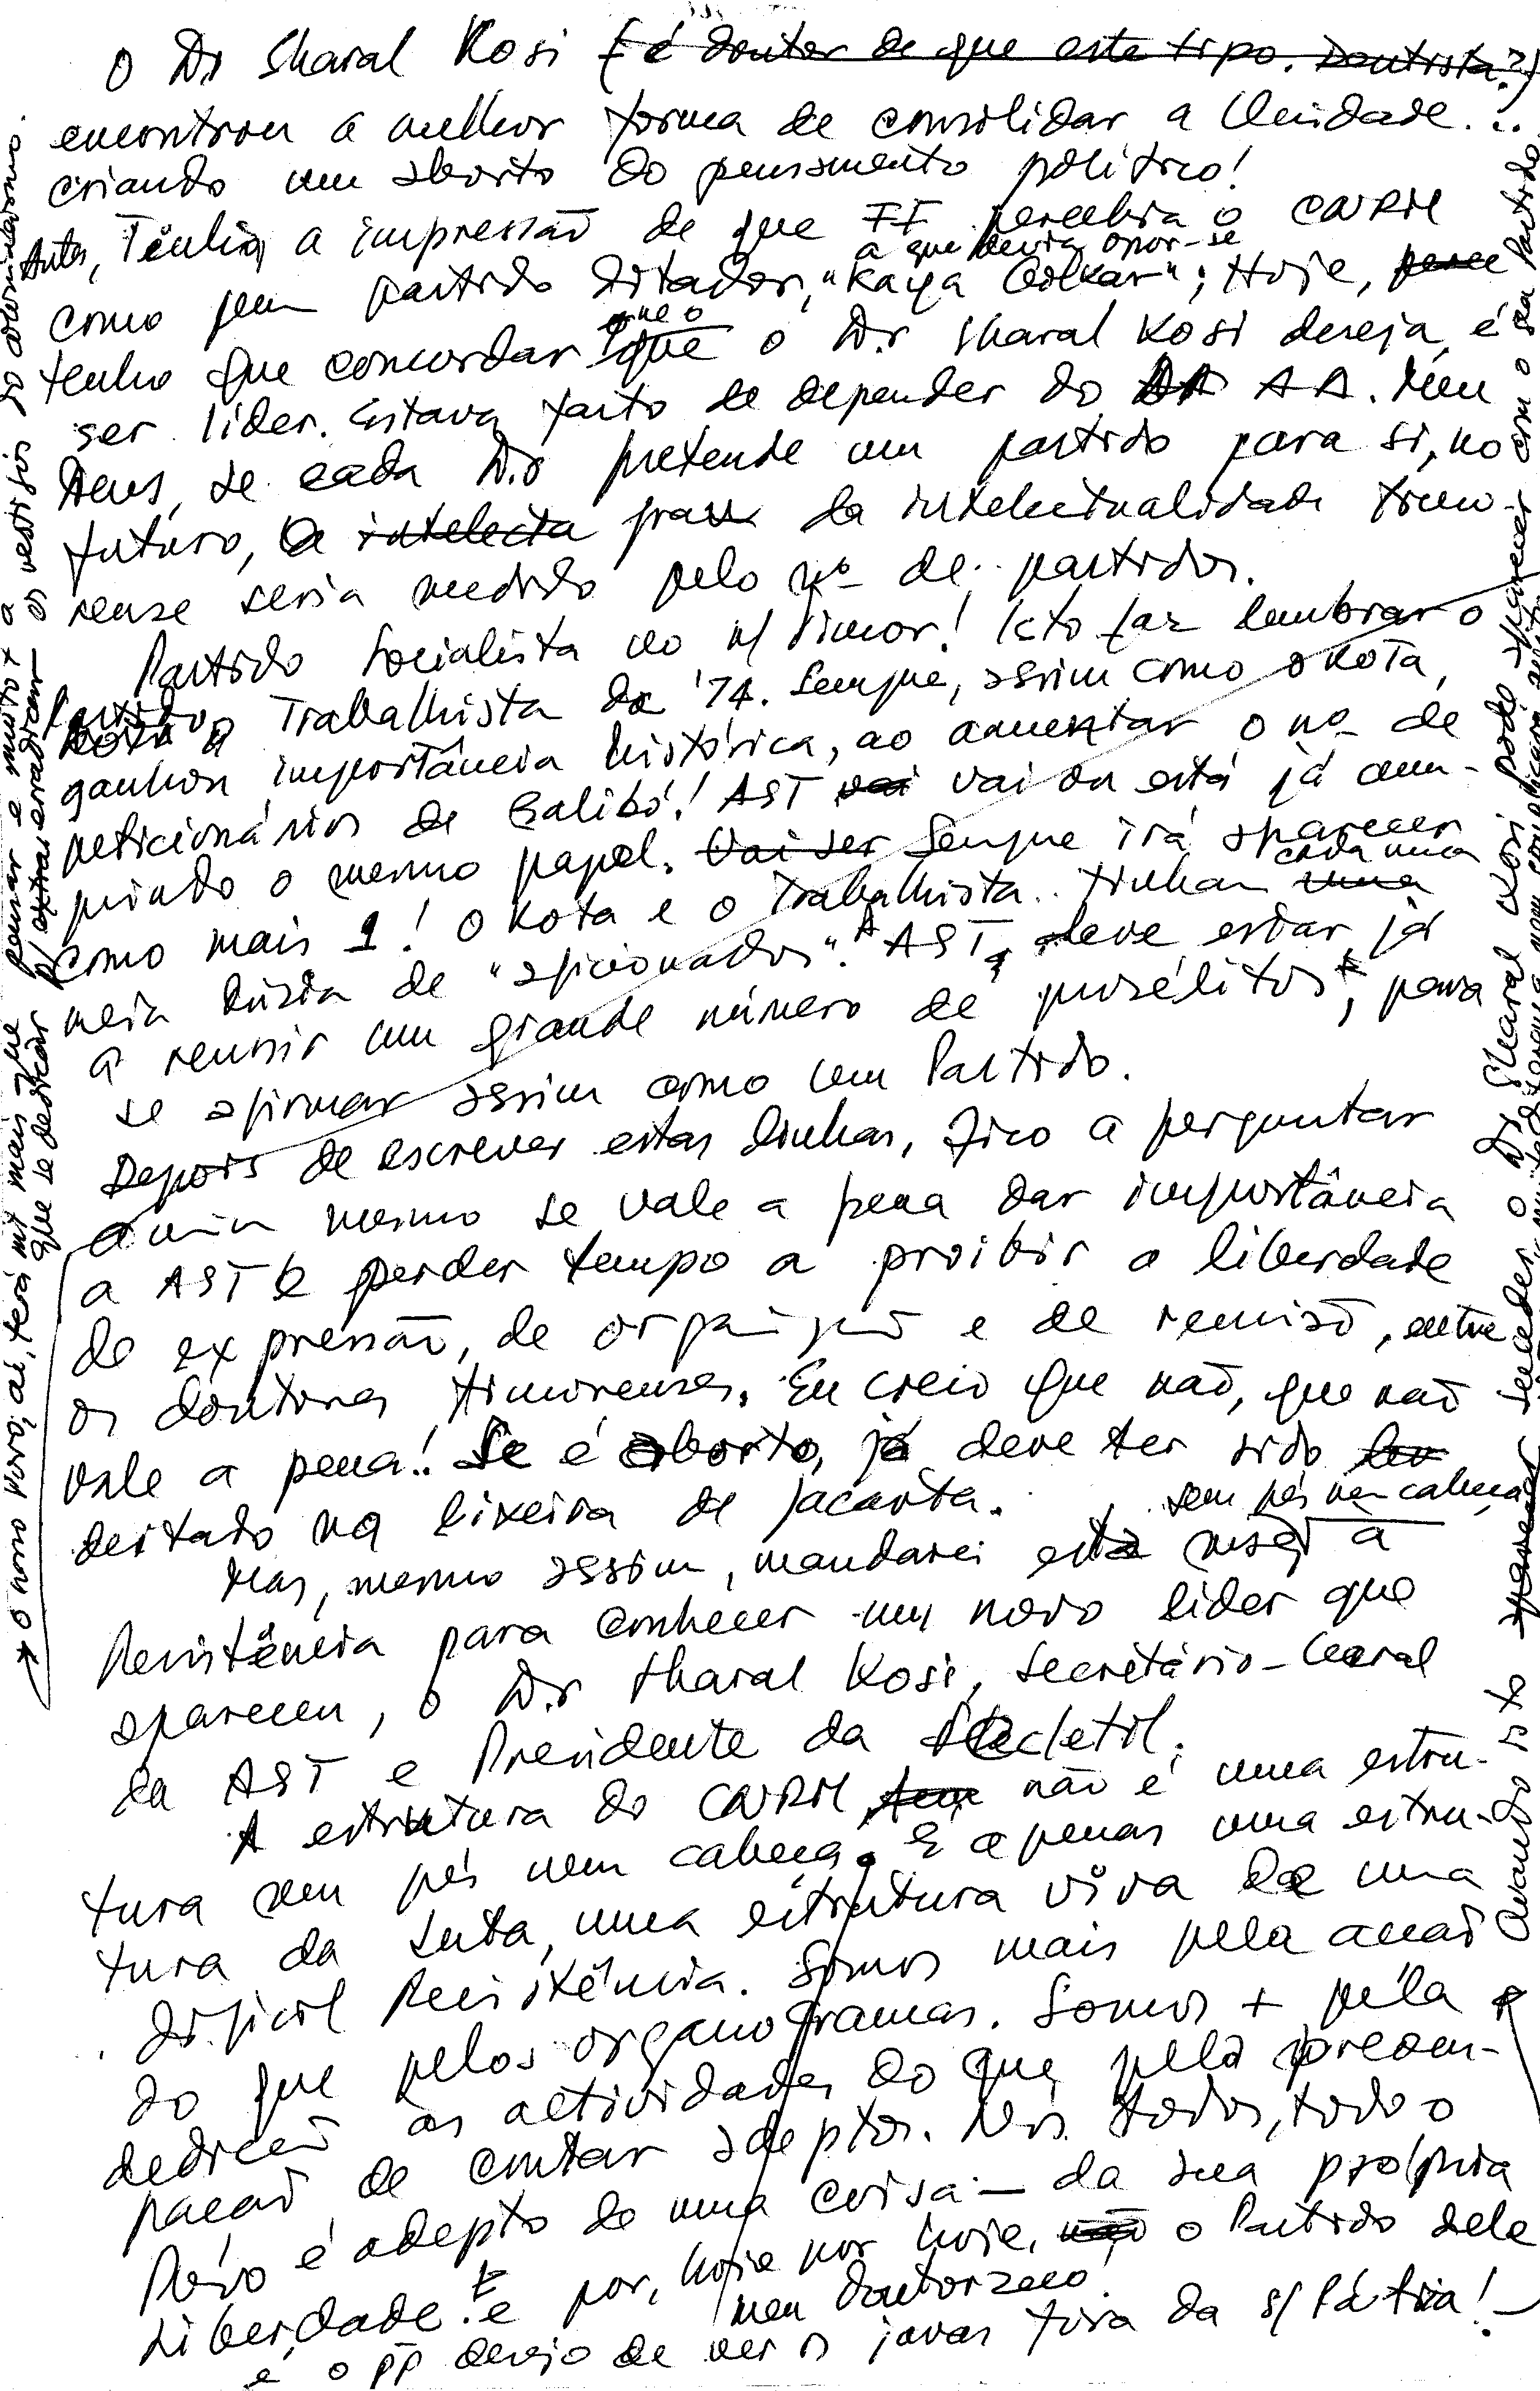 O Dr Sharal Kosi (é doutor de que este tipo. Dentista?)
encontrou a melhor forma de consolidar a Unidade...
criando um aborto do pensamento político!
Antes, Tinha a impressão de que FF percebia o CNRM
a que devia opor-se
como um partido ditador, "Kaya Golkar"; Hoje,
que o
tenho que concordar que o Dr Sharal Kosi deseja é
ser líder. Estava farto de depender do AA. Meu
Deus, se cada Dr pretende um partido para si, no
futuro, o intelecta grau da intelectualidade timo-
rense seria medido pelo nº de partidos.
Partido Socialista no n/ Timor! Isto faz lembrar o
Partido Trabalhista de '74. Sempre, assim como o KOTA,
ganhou importância histórica, ao aumentar o nº de
peticionários de Balibó! AST vai vai ou está já cum-
prindo o mesmo papel. Vai ser Sempre irá aparecer
como mais 1! O Kota e o Trabalhista tinham uma
cada uma
meia dúzia de "aficionados". A AST, deve estar já
a reunir um grande número de prosélitos, para
se afirmar assim como um Partido.
Depois de escrever estas linhas, fico a perguntar
a mim mesmo se vale a pena dar importância
a AST e perder tempo a proibir a liberdade
de expressão, de organização e de reunião, entre
os doutores timorenses. Eu creio que não, que não
vale a pena! Se é aborto, já deve ter sido
deitado na lixeira de Jacarta.
sem pés nem cabeça
Mas, mesmo assim, mandarei esta à
Resistência para conhecer um novo líder que
apareceu, o Dr Sharal Kosi, Secretário-Geral
da AST e Presidente da
A estrutura do CNRM não é uma estru-
tura sem pés nem cabeça. É apenas uma estru-
tura da Luta, uma estrutura viva de uma
difícil Resistência. Somos mais pela acção
do que pelos organogramas. Somos + pela
dedicação às actividades do que pela preocu-
pação de contar adeptos. Nós todos, todo o
Povo é adepto de uma coisa — da sua própria
Liberdade. E é por, hoje por hoje, não o Partido dele
meu doutorzeco!
e o desejo de ver os javas fora da s/ Pátria!
→ O nosso Povo, aí, terá mt mais que pensar e muito + a
que se dedicar p/ extrair erradicar os vestígios do colonialismo.
Quando isto suceder, o Dr Sharal Kosi pode aparecer com o seu Partido.